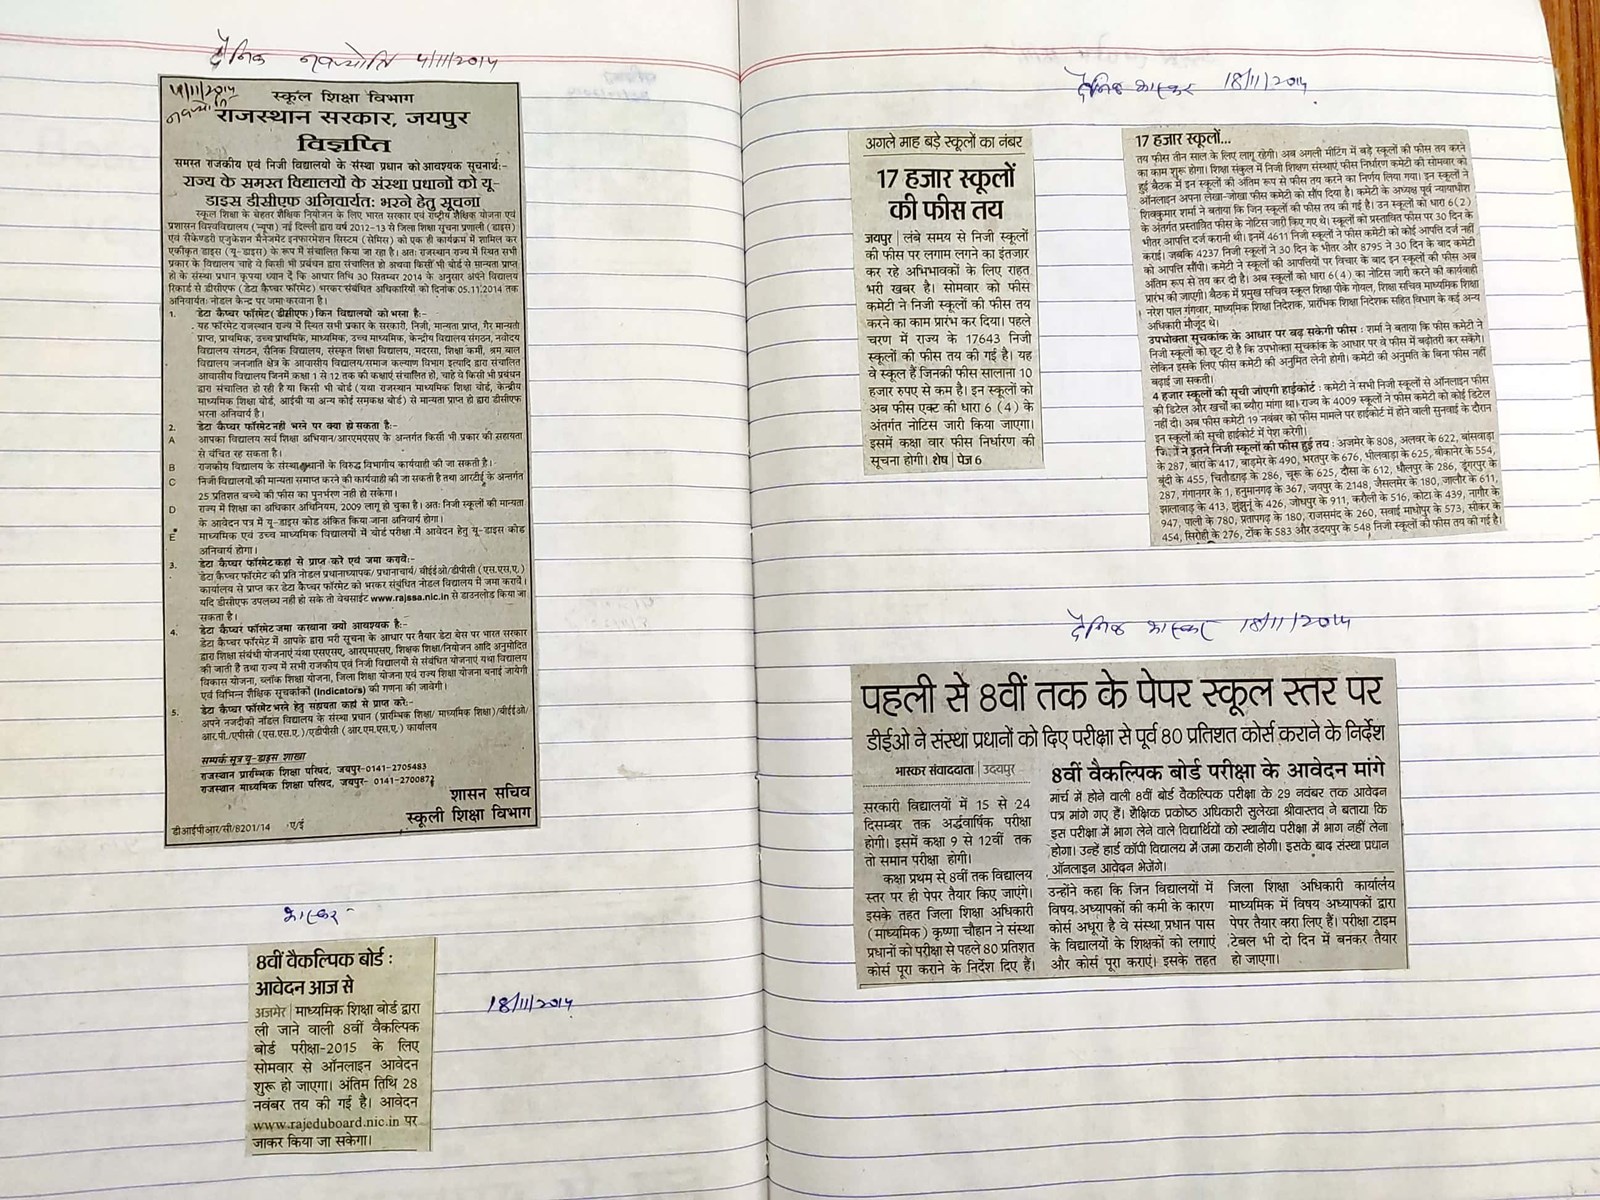 दैनिक नवज्योति 4/11/2014
4/11/2014
नवज्योति
स्कूल शिक्षा विभाग
राजस्थान सरकार, जयपुर
विज्ञप्ति
समस्त राजकीय एवं निजी विद्यालयों के संस्था प्रधान को आवश्यक सूचनार्थ:-
राज्य के समस्त विद्यालयों के संस्था प्रधानों को यू-
डाइस डीसीएफ अनिवार्यत: भरने हेतु सूचना
स्कूल शिक्षा के बेहतर शैक्षिक नियोजन के लिए भारत सरकार एवं राष्ट्रीय शैक्षिक योजना एवं
प्रशासन विश्वविद्यालय (न्यूपा) नई दिल्ली द्वारा वर्ष 2012-13 से जिला शिक्षा सूचना प्रणाली (डाइस)
एवं सैकेण्डरी एजुकेशन मैनेजमेंट इनफारमेशन सिस्टम (सेमिस) को एक ही कार्यक्रम में शामिल कर
एकीकृत डाइस (यू-डाइस) के रूप में संचालित किया जा रहा है। अत: राजस्थान राज्य में स्थित सभी
प्रकार के विद्यालय चाहे ये किसी भी प्रबंधन द्वारा संचालित हो अथवा किसी भी बोर्ड से मान्यता प्राप्त
हो के संस्था प्रधान कृपया ध्यान दें कि आधार तिथि 30 सितम्बर 2014 के अनुसार अपने विद्यालय
रिकार्ड से डीसीएफ (डेटा कैप्चर फॉरमेट) भरकर संबंधित अधिकारियों को दिनांक 05.11.2014 तक
अनिवार्यत: नोडल केन्द्र पर जमा करवाना है।
1. डेटा कैप्चर फॉरमेट (डीसीएफ) किन विद्यालयों को भरना है:-
यह फॉरमेट राजस्थान राज्य में स्थित सभी प्रकार के सरकारी, निजी, मान्यता प्राप्त, गैर मान्यता
प्राप्त, प्राथमिक, उच्च प्राथमिक, माध्यमिक, उच्च माध्यमिक, केन्द्रीय विद्यालय संगठन, नवोदय
विद्यालय संगठन, सैनिक विद्यालय, संस्कृत शिक्षा विद्यालय, मदरसा, शिक्षा कर्मी, श्रम बाल
विद्यालय जनजाति क्षेत्र के आवासीय विद्यालय/समाज कल्याण विभाग इत्यादि द्वारा संचालित
आवासीय विद्यालय जिनमें कक्षा 1 से 12 तक की कक्षाएं संचालित हो, चाहे ये किसी भी प्रबंधन
द्वारा संचालित हो रही है या किसी भी बोर्ड (यथा राजस्थान माध्यमिक शिक्षा बोर्ड, केन्द्रीय
माध्यमिक शिक्षा बोर्ड, आईबी या अन्य कोई समकक्ष बोर्ड) से मान्यता प्राप्त हो द्वारा डीसीएफ
भरना अनिवार्य है।
2. डेटा कैप्चर फॉरमेट नही भरने पर क्या हो सकता है:-
A आपका विद्यालय सर्व शिक्षा अभियान/आरएमएसए के अन्तर्गत किसी भी प्रकार की सहायता
से वंचित रह सकता है।
B राजकीय विद्यालय के संस्था प्रधानों के विरुद्ध विभागीय कार्यवाही की जा सकती है।
C निजी विद्यालयों की मान्यता समाप्त करने की कार्यवाही की जा सकती है तथा आरटीई के अन्तर्गत
25 प्रतिशत बच्चे की फीस का पुनर्भरण नही हो सकेगा।
D राज्य में शिक्षा का अधिकार अधिनियम, 2009 लागू हो चुका है। अत: निजी स्कूलों की मान्यता
के आवेदन पत्र में यू-डाइस कोड अंकित किया जाना अनिवार्य होगा।
E माध्यमिक एवं उच्च माध्यमिक विद्यालयों में बोर्ड परीक्षा में आवेदन हेतु यू-डाइस कोड
अनिवार्य होगा।
3. डेटा कैप्चर फॉरमेट कहां से प्राप्त करे एवं जमा करावें:-
डेटा कैप्चर फॉरमेट की प्रति नोडल प्रधानाध्यापक/ प्रधानाचार्य/ बीईईओ/डीपीसी (एस.एस.ए.)
कार्यालय से प्राप्त कर डेटा कैप्चर फॉरमेट को भरकर संबंधित नोडल विद्यालय में जमा करावें।
यदि डीसीएफ उपलब्ध नही हो सके तो वेबसाईट www.rajssa.nic.in से डाउनलोड किया जा
सकता है।
4. डेटा कैप्चर फॉरमेट जमा करवाना क्यों आवश्यक है:-
डेटा कैप्चर फॉरमेट में आपके द्वारा भरी सूचना के आधार पर तैयार डेटा बेस पर भारत सरकार
द्वारा शिक्षा संबंधी योजनाएं यथा एसएसए, आरएमएसए, शिक्षक शिक्षा/नियोजन आदि अनुमोदित
की जाती है तथा राज्य में सभी राजकीय एवं निजी विद्यालयों से संबंधित योजनाएं यथा विद्यालय
विकास योजना, ब्लॉक शिक्षा योजना, जिला शिक्षा योजना एवं राज्य शिक्षा योजना बनाई जायेगी
एवं विभिन्न शैक्षिक सूचकांकों (Indicators) की गणना की जावेगी।
5. डेटा कैप्चर फॉरमेट भरने हेतु सहायता कहां से प्राप्त करे:-
अपने नजदीकी नॉडल विद्यालय के संस्था प्रधान (प्रारम्भिक शिक्षा/ माध्यमिक शिक्षा)/बीईईओ/
आर.पी./एपीसी (एस.एस.ए.)/एडीपीसी (आर.एम.एस.ए.) कार्यालय
सम्पर्क सूत्र यू-डाइस शाखा
राजस्थान प्रारम्भिक शिक्षा परिषद, जयपुर-0141-2705483
राजस्थान माध्यमिक शिक्षा परिषद, जयपुर- 0141-2700872
शासन सचिव
स्कूली शिक्षा विभाग
डीआईपीआर/सी/8201/14 ए/ई
भास्कर
8वीं वैकल्पिक बोर्ड :
आवेदन आज से
अजमेर | माध्यमिक शिक्षा बोर्ड द्वारा
ली जाने वाली 8वीं वैकल्पिक
बोर्ड परीक्षा-2015 के लिए
सोमवार से ऑनलाइन आवेदन
शुरू हो जाएगा। अंतिम तिथि 28
नवंबर तय की गई है। आवेदन
www.rajeduboard.nic.in पर
जाकर किया जा सकेगा।
18/11/2014
दैनिक भास्कर 18/11/2014
अगले माह बड़े स्कूलों का नंबर
17 हजार स्कूलों
की फीस तय
जयपुर | लंबे समय से निजी स्कूलों
की फीस पर लगाम लगने का इंतजार
कर रहे अभिभावकों के लिए राहत
भरी खबर है। सोमवार को फीस
कमेटी ने निजी स्कूलों की फीस तय
करने का काम प्रारंभ कर दिया। पहले
चरण में राज्य के 17643 निजी
स्कूलों की फीस तय की गई है। यह
वे स्कूल हैं जिनकी फीस सालाना 10
हजार रुपए से कम है। इन स्कूलों को
अब फीस एक्ट की धारा 6 (4) के
अंतर्गत नोटिस जारी किया जाएगा।
इसमें कक्षा वार फीस निर्धारण की
सूचना होगी। शेष | पेज 6
17 हजार स्कूलों...
तय फीस तीन साल के लिए लागू रहेगी। अब अगली मीटिंग में बड़े स्कूलों की फीस तय करने
का काम शुरू होगा। शिक्षा संकुल में निजी शिक्षण संस्थाएं फीस निर्धारण कमेटी की सोमवार को
हुई बैठक में इन स्कूलों की अंतिम रूप से फीस तय करने का निर्णय लिया गया। इन स्कूलों ने
ऑनलाइन अपना लेखा-जोखा फीस कमेटी को सौंप दिया है। कमेटी के अध्यक्ष पूर्व न्यायाधीश
शिवकुमार शर्मा ने बताया कि जिन स्कूलों की फीस तय की गई है। उन स्कूलों को धारा 6(2)
के अंतर्गत प्रस्तावित फीस के नोटिस जारी किए गए थे। स्कूलों को प्रस्तावित फीस पर 30 दिन के
भीतर आपत्ति दर्ज करानी थी। इनमें 4611 निजी स्कूलों ने फीस कमेटी को कोई आपत्ति दर्ज नहीं
कराई। जबकि 4237 निजी स्कूलों ने 30 दिन के भीतर और 8795 ने 30 दिन के बाद कमेटी
को आपत्ति सौंपी। कमेटी ने स्कूलों की आपत्तियों पर विचार के बाद इन स्कूलों की फीस अब
अंतिम रूप से तय कर दी है। अब स्कूलों को धारा 6(4) का नोटिस जारी करने की कार्यवाही
प्रारंभ की जाएगी। बैठक में प्रमुख सचिव स्कूल शिक्षा पीके गोयल, शिक्षा सचिव माध्यमिक शिक्षा
नरेश पाल गंगवार, माध्यमिक शिक्षा निदेशक, प्रारंभिक शिक्षा निदेशक सहित विभाग के कई अन्य
अधिकारी मौजूद थे।
उपभोक्ता सूचकांक के आधार पर बढ़ सकेगी फीस : शर्मा ने बताया कि फीस कमेटी ने
निजी स्कूलों को छूट दी है कि उपभोक्ता सूचकांक के आधार पर वे फीस में बढ़ोतरी कर सकेंगे।
लेकिन इसके लिए फीस कमेटी की अनुमति लेनी होगी। कमेटी की अनुमति के बिना फीस नहीं
बढ़ाई जा सकती।
4 हजार स्कूलों की सूची जाएगी हाईकोर्ट : कमेटी ने सभी निजी स्कूलों से ऑनलाइन फीस
की डिटेल और खर्चों का ब्यौरा मांगा था। राज्य के 4009 स्कूलों ने फीस कमेटी को कोई डिटेल
नहीं दी। अब फीस कमेटी 19 नवंबर को फीस मामले पर हाईकोर्ट में होने वाली सुनवाई के दौरान
इन स्कूलों की सूची हाईकोर्ट में पेश करेगी।
इतने निजी स्कूलों की फीस हुई तय : अजमेर के 808, अलवर के 622, बांसवाड़ा
के 287, बारां के 417, बाड़मेर के 490, भरतपुर के 676, भीलवाड़ा के 625, बीकानेर के 554,
बूंदी के 455, चित्तौड़गढ़ के 286, चूरू के 625, दौसा के 612, धौलपुर के 286, डूंगरपुर के
287, गंगानगर के 1, हनुमानगढ़ के 367, जयपुर के 2148, जैसलमेर के 180, जालौर के 611,
झालावाड़ के 413, झुंझुनूं के 426, जोधपुर के 911, करौली के 516, कोटा के 439, नागौर के
947, पाली के 780, प्रतापगढ़ के 180, राजसमंद के 260, सवाई माधोपुर के 573, सीकर के
454, सिरोही के 276, टोंक के 583 और उदयपुर के 548 निजी स्कूलों की फीस तय की गई है।
दैनिक भास्कर 18/11/2014
पहली से 8वीं तक के पेपर स्कूल स्तर पर
डीईओ ने संस्था प्रधानों को दिए परीक्षा से पूर्व 80 प्रतिशत कोर्स कराने के निर्देश
भास्कर संवाददाता | उदयपुर
सरकारी विद्यालयों में 15 से 24
दिसम्बर तक अर्द्धवार्षिक परीक्षा
होगी। इसमें कक्षा 9 से 12वीं तक
तो समान परीक्षा होगी।
कक्षा प्रथम से 8वीं तक विद्यालय
स्तर पर ही पेपर तैयार किए जाएंगे।
इसके तहत जिला शिक्षा अधिकारी
(माध्यमिक) कृष्णा चौहान ने संस्था
प्रधानों को परीक्षा से पहले 80 प्रतिशत
कोर्स पूरा कराने के निर्देश दिए हैं।
8वीं वैकल्पिक बोर्ड परीक्षा के आवेदन मांगे
मार्च में होने वाली 8वीं बोर्ड वैकल्पिक परीक्षा के 29 नवंबर तक आवेदन
पत्र मांगे गए हैं। शैक्षिक प्रकोष्ठ अधिकारी सुलेखा श्रीवास्तव ने बताया कि
इस परीक्षा में भाग लेने वाले विद्यार्थियों को स्थानीय परीक्षा में भाग नहीं लेना
होगा। उन्हें हार्ड कॉपी विद्यालय में जमा करानी होगी। इसके बाद संस्था प्रधान
ऑनलाइन आवेदन भेजेंगे।
उन्होंने कहा कि जिन विद्यालयों में
विषय अध्यापकों की कमी के कारण
कोर्स अधूरा है वे संस्था प्रधान पास
के विद्यालयों के शिक्षकों को लगाएं
और कोर्स पूरा कराएं। इसके तहत
जिला शिक्षा अधिकारी कार्यालय
माध्यमिक में विषय अध्यापकों द्वारा
पेपर तैयार करा लिए हैं। परीक्षा टाइम
टेबल भी दो दिन में बनकर तैयार
हो जाएगा।